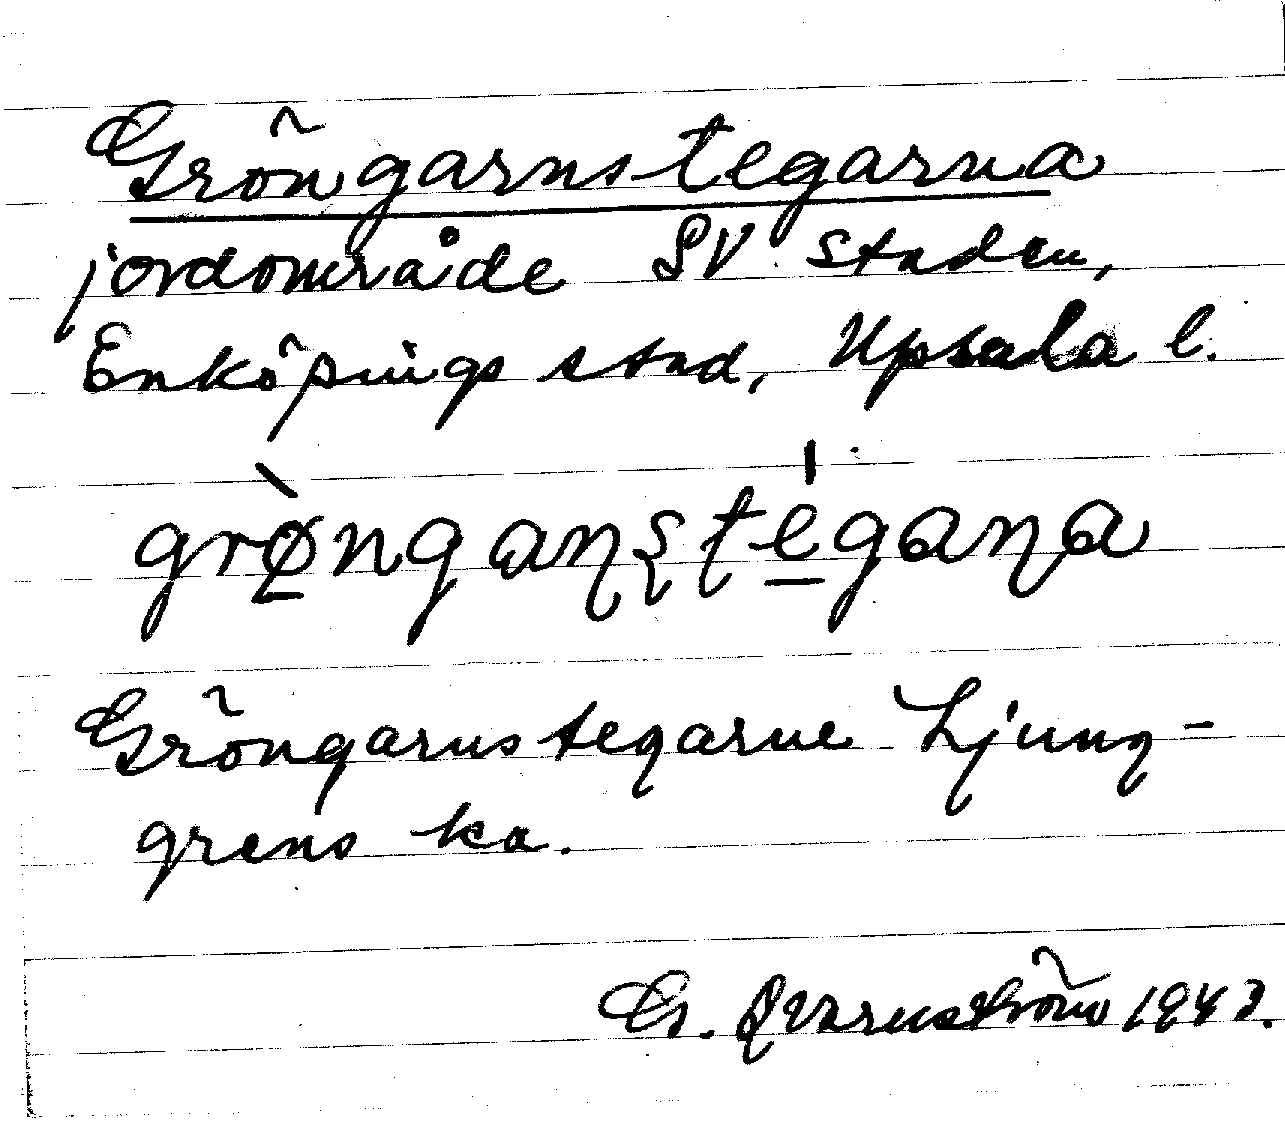 Gröngarnstegarna
jordområde SV staden,
Enköpings stad, Upsala l.
grø̀nganstégana
Gröngarnstegarne Ljung-
grens ka.
G. Qvarnström 1943.